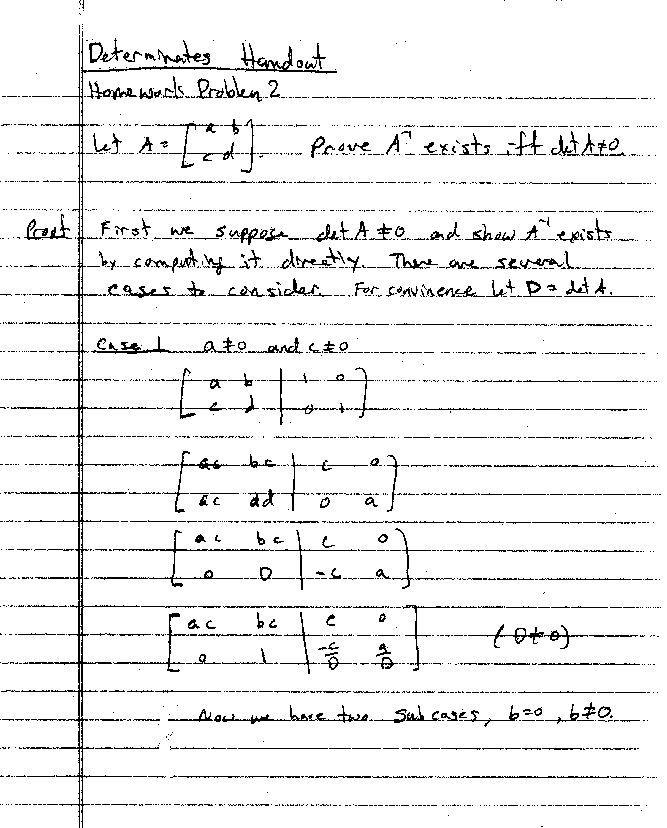 Determinates Handout
Homework Problem 2
Let A = [a b; c d]. Prove A⁻¹ exists iff det A ≠ 0.
Proof First we suppose det A ≠ 0 and show A⁻¹ exists
by computing it directly. There are several
cases to consider. For convinence let D = det A.
Case 1 a ≠ 0 and c ≠ 0
[ a b | 1 0 ]
[ c d | 0 1 ]
[ ac bc | c 0 ]
[ ac ad | 0 a ]
[ ac bc | c 0 ]
[ 0 D | -c a ]
[ ac bc | c 0 ]
[ 0 1 | -c/D a/D ] (D ≠ 0)
Now we have two subcases, b=0, b≠0.